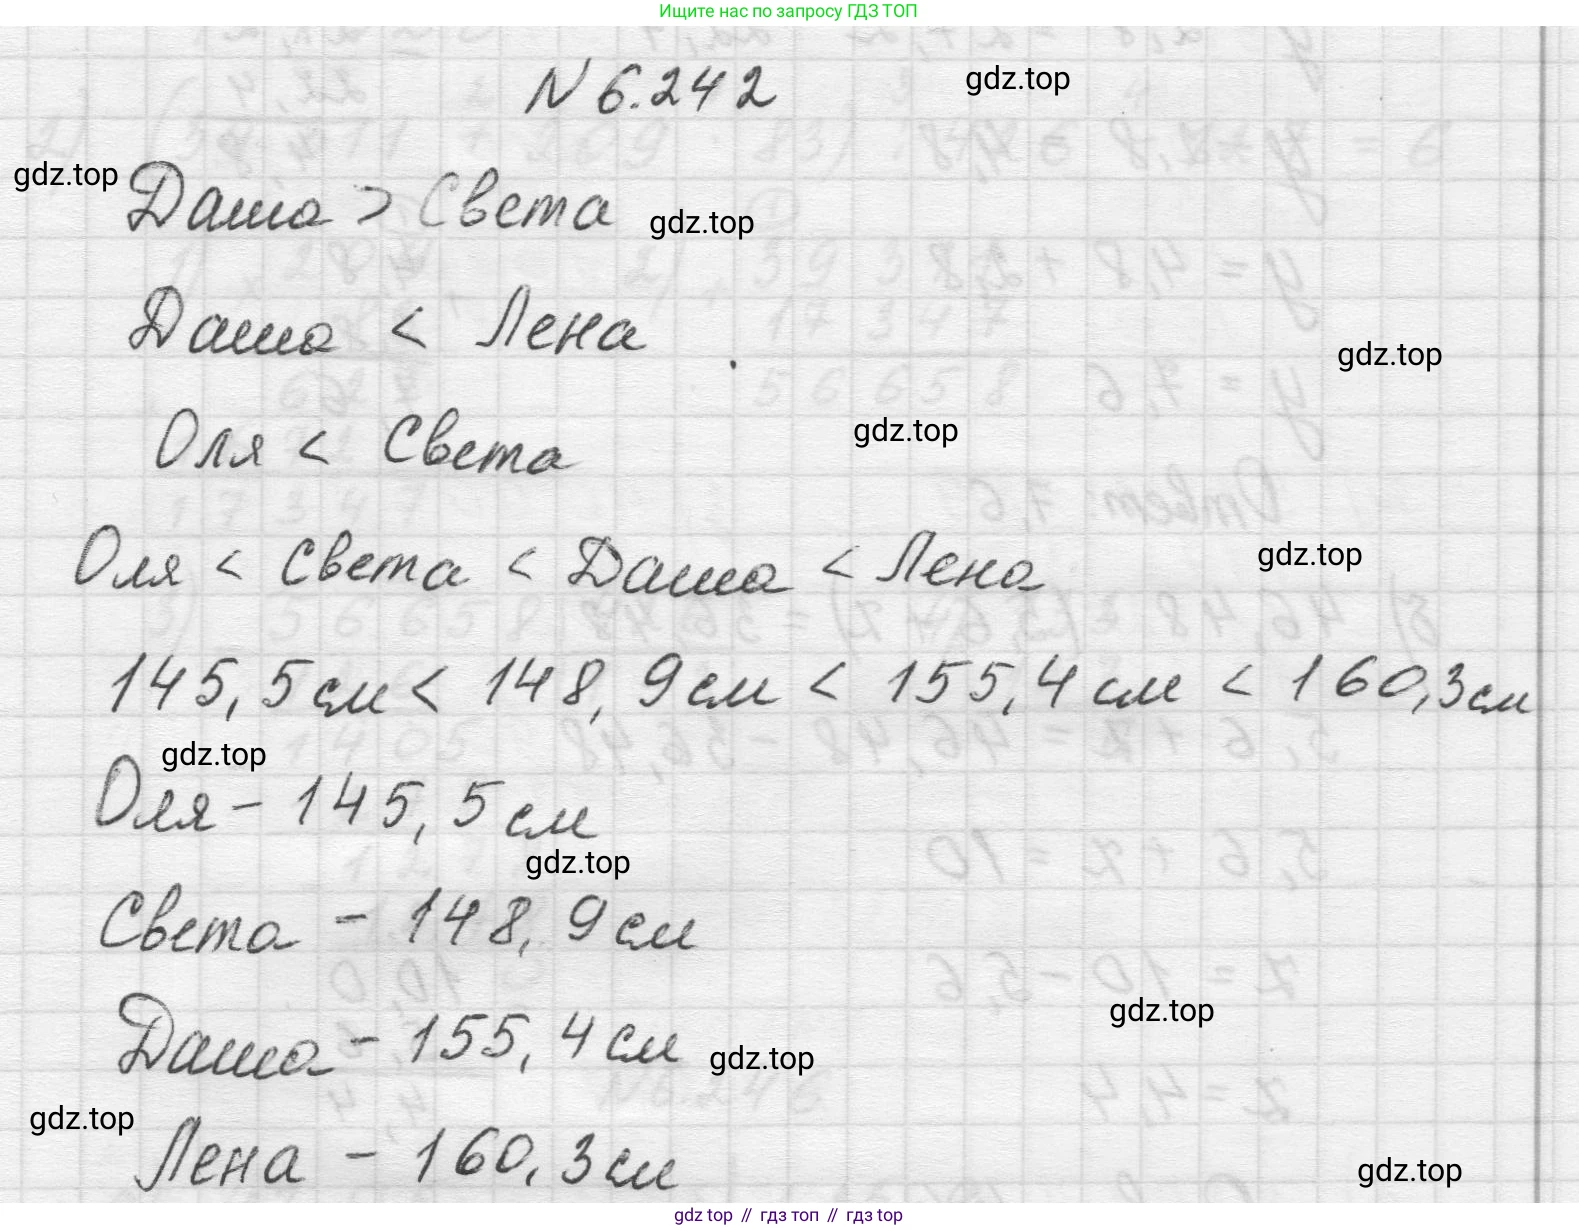 Ищите нас по запросу ГДЗ ТОП
N 6.242
gdz.top
gdz.top
Даша > Света
gdz.top
Даша < Лена
gdz.top
Оля < Света
gdz.top
Оля < Света < Даша < Лена
gdz.top
145,5см < 148,9см < 155,4см < 160,3см
gdz.top
Оля - 145,5см
gdz.top
Света - 148,9см
gdz.top
Даша - 155,4см
gdz.top
gdz.top
Лена - 160,3см
gdz.top
gdz top // гдз топ // гдз top